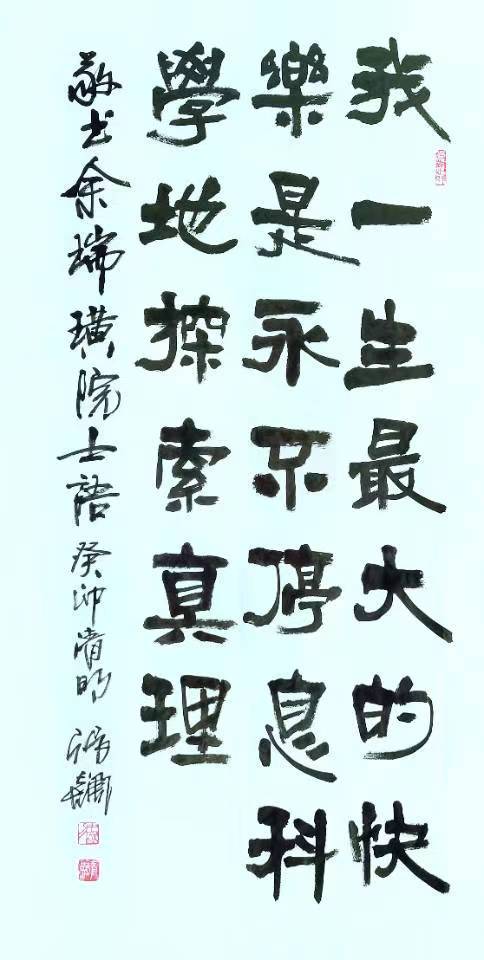 我一生最大的快
樂是永不停息科
學地探索真理
敬书余瑞璜院士語 癸卯清明 張